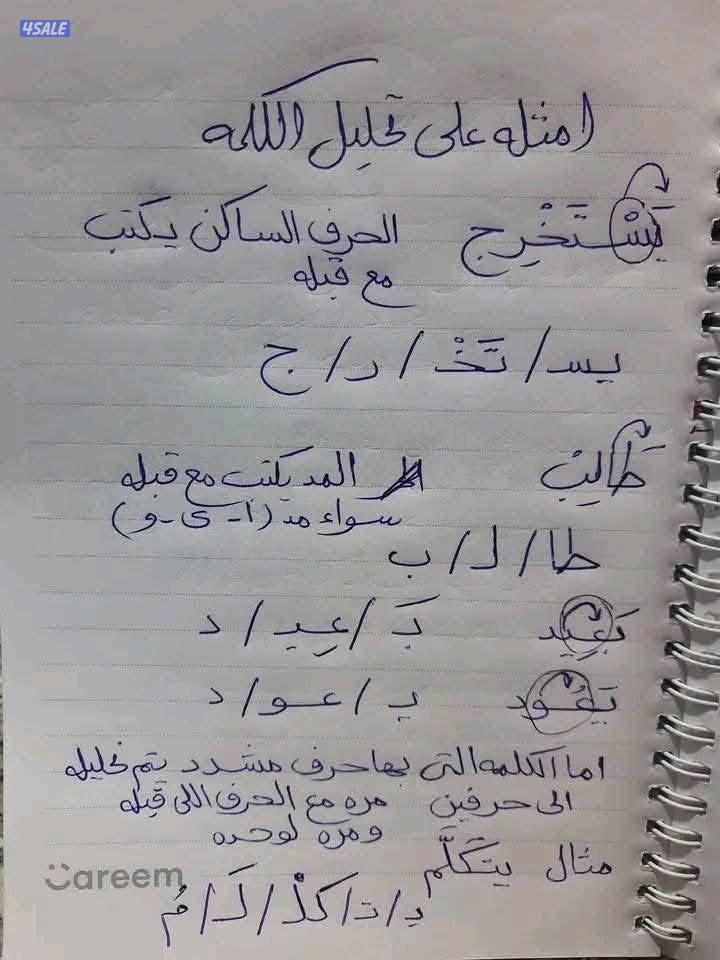 4SALE
امثله على تحليل الكلمه
يَسْتَخْرِج الحرف الساكن يكتب
مع قبله
يسـ / تَخْـ / ر / ج
طَالِبْ المد يكتب مع قبله
سواء مد (ا - ى - و)
طا / لـ / ب
بَعِيد بَـ / عِيـ / د
يَعُود يـ / عـو / د
اما الكلمه التى بها حرف مشدد يتم تحليله
الى حرفين مره مع الحرف اللى قبله
ومره لوحده
مثال يتَكَلَّم
يـ / تـ / كَلْـ / لَـ / مُ
Careem